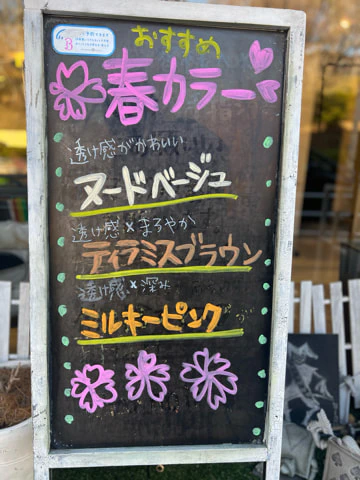 おすすめ
春カラー
透け感がかわいい
ヌードベージュ
透け感×まろやか
ティラミスブラウン
透け感×深み
ミルキーピンク